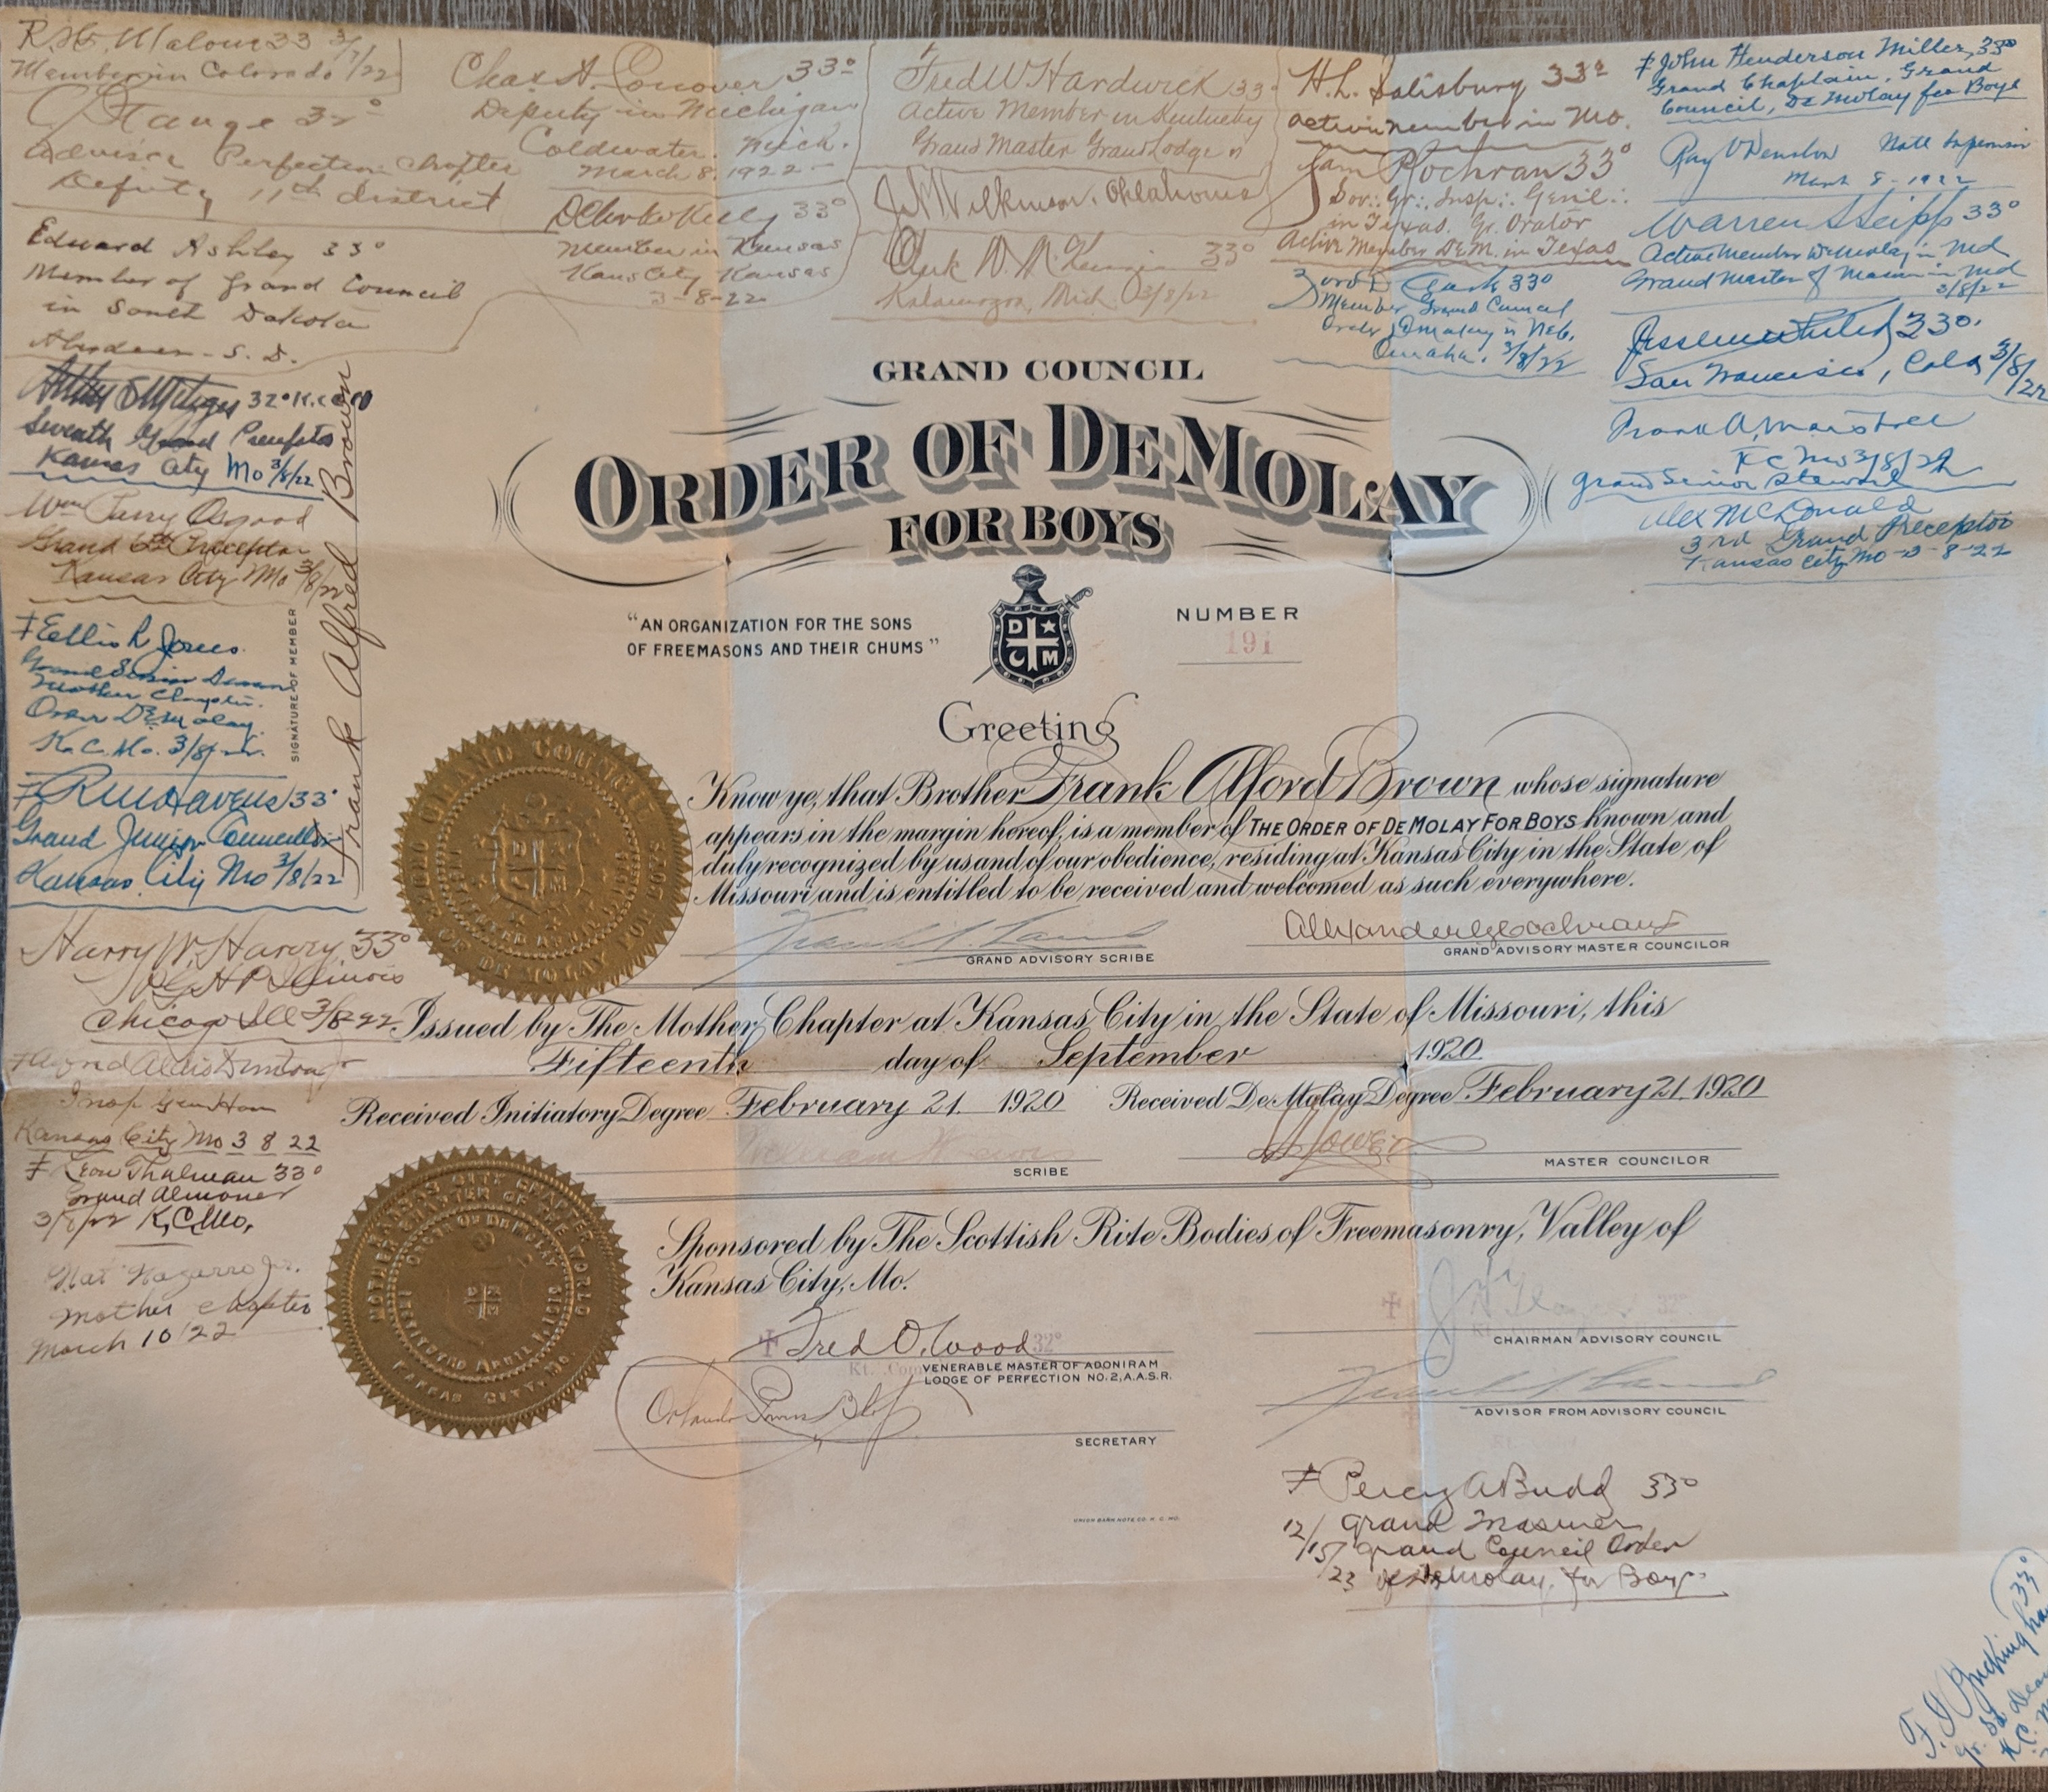 R. W. Malone 33 3/7/22
Member in Colorado
32°
Advisor Perfection Chapter
Deputy 11th district
Edward Ashley 33°
Member of Grand Council
in South Dakota
Aberdeen - S. D.
32° K.C.C.H
Seventh Grand Preceptor
Kansas City Mo 3/8/22
Wm Perry Osgood
Grand 6th Preceptor
Kansas City Mo 3/8/22
Ellis R Jones.
Grand Senior Deacon
Mother Chapter.
Order DeMolay.
K. C. Mo. 3/8/22.
33°
Grand Junior Councillor
Kansas City Mo 3/8/22
SIGNATURE OF MEMBER
Frank Alfred Brown
Harry W. Harvey 33°
Illinois
Chicago Ill 3/8-22
Kansas City Mo 3 8 22
Leon Thalman 33°
Grand Almoner
3/8/22 K.C.Mo.
Nat Nazarro Jr.
Mother Chapter
March 10/22
Chas. A. Conover 33°
Deputy in Michigan
Coldwater. Mich.
March 8, 1922
33°
Member in Kansas
Kans City Kansas
3-8-22
Fred W Hardwick 33°
Active Member in Kentucky
Grand Master Grand Lodge
Wilkinson. Oklahoma
33°
Kalamazoo, Mich. 3/8/22
H. L. Salisbury 33°
Active member in Mo.
Sam P Cochran 33°
Sov∴ Gr∴ Insp∴ Genl∴
in Texas. Gr. Orator
Active Member DeM. in Texas
33°
Member Grand Council
Order Demolay in Neb.
Omaha. 3/8/22
John Henderson Miller, 33°
Grand Chaplain, Grand
Council, De Molay for Boys
Ray V Denslow
March 8-1922
Warren S Seipp 33°
Active Member DeMolay in Md
Grand Master of Masons in Md
3/8/22
33°.
San Francisco, Cala 3/8/22
Frank A. Marshall
K C Mo 3/8/22
Grand Senior Steward
Alex McDonald
3rd Grand Preceptor
Kansas City Mo - 3-8-22
GRAND COUNCIL
ORDER OF DEMOLAY
FOR BOYS
"AN ORGANIZATION FOR THE SONS
OF FREEMASONS AND THEIR CHUMS"
D
C M
NUMBER
191
Greeting
Know ye, that Brother Frank Alford Brown whose signature
appears in the margin hereof, is a member of THE ORDER OF DEMOLAY FOR BOYS known and
duly recognized by us and of our obedience, residing at Kansas City in the State of
Missouri and is entitled to be received and welcomed as such everywhere.
Frank S. Land
GRAND ADVISORY SCRIBE
Alexander G Cochran
GRAND ADVISORY MASTER COUNCILOR
Issued by The Mother Chapter at Kansas City in the State of Missouri, this
Fifteenth day of September 1920.
Received Initiatory Degree February 21. 1920 Received DeMolay Degree February 21. 1920
SCRIBE
MASTER COUNCILOR
Sponsored by The Scottish Rite Bodies of Freemasonry, Valley of
Kansas City, Mo.
Fred O. Wood 32°
VENERABLE MASTER OF ADONIRAM
LODGE OF PERFECTION NO. 2, A.A.S.R.
SECRETARY
32°
CHAIRMAN ADVISORY COUNCIL
Frank S Land
ADVISOR FROM ADVISORY COUNCIL
UNION BANK NOTE CO. K. C. MO.
GRAND COUNCIL
ORDER OF DE MOLAY FOR BOYS
MOTHER CHAPTER OF THE WORLD
ORDER OF DEMOLAY
KANSAS CITY, MO.
Percy A Budd 33°
12/15/23
Grand Council Order
of DeMolay for Boys
33°